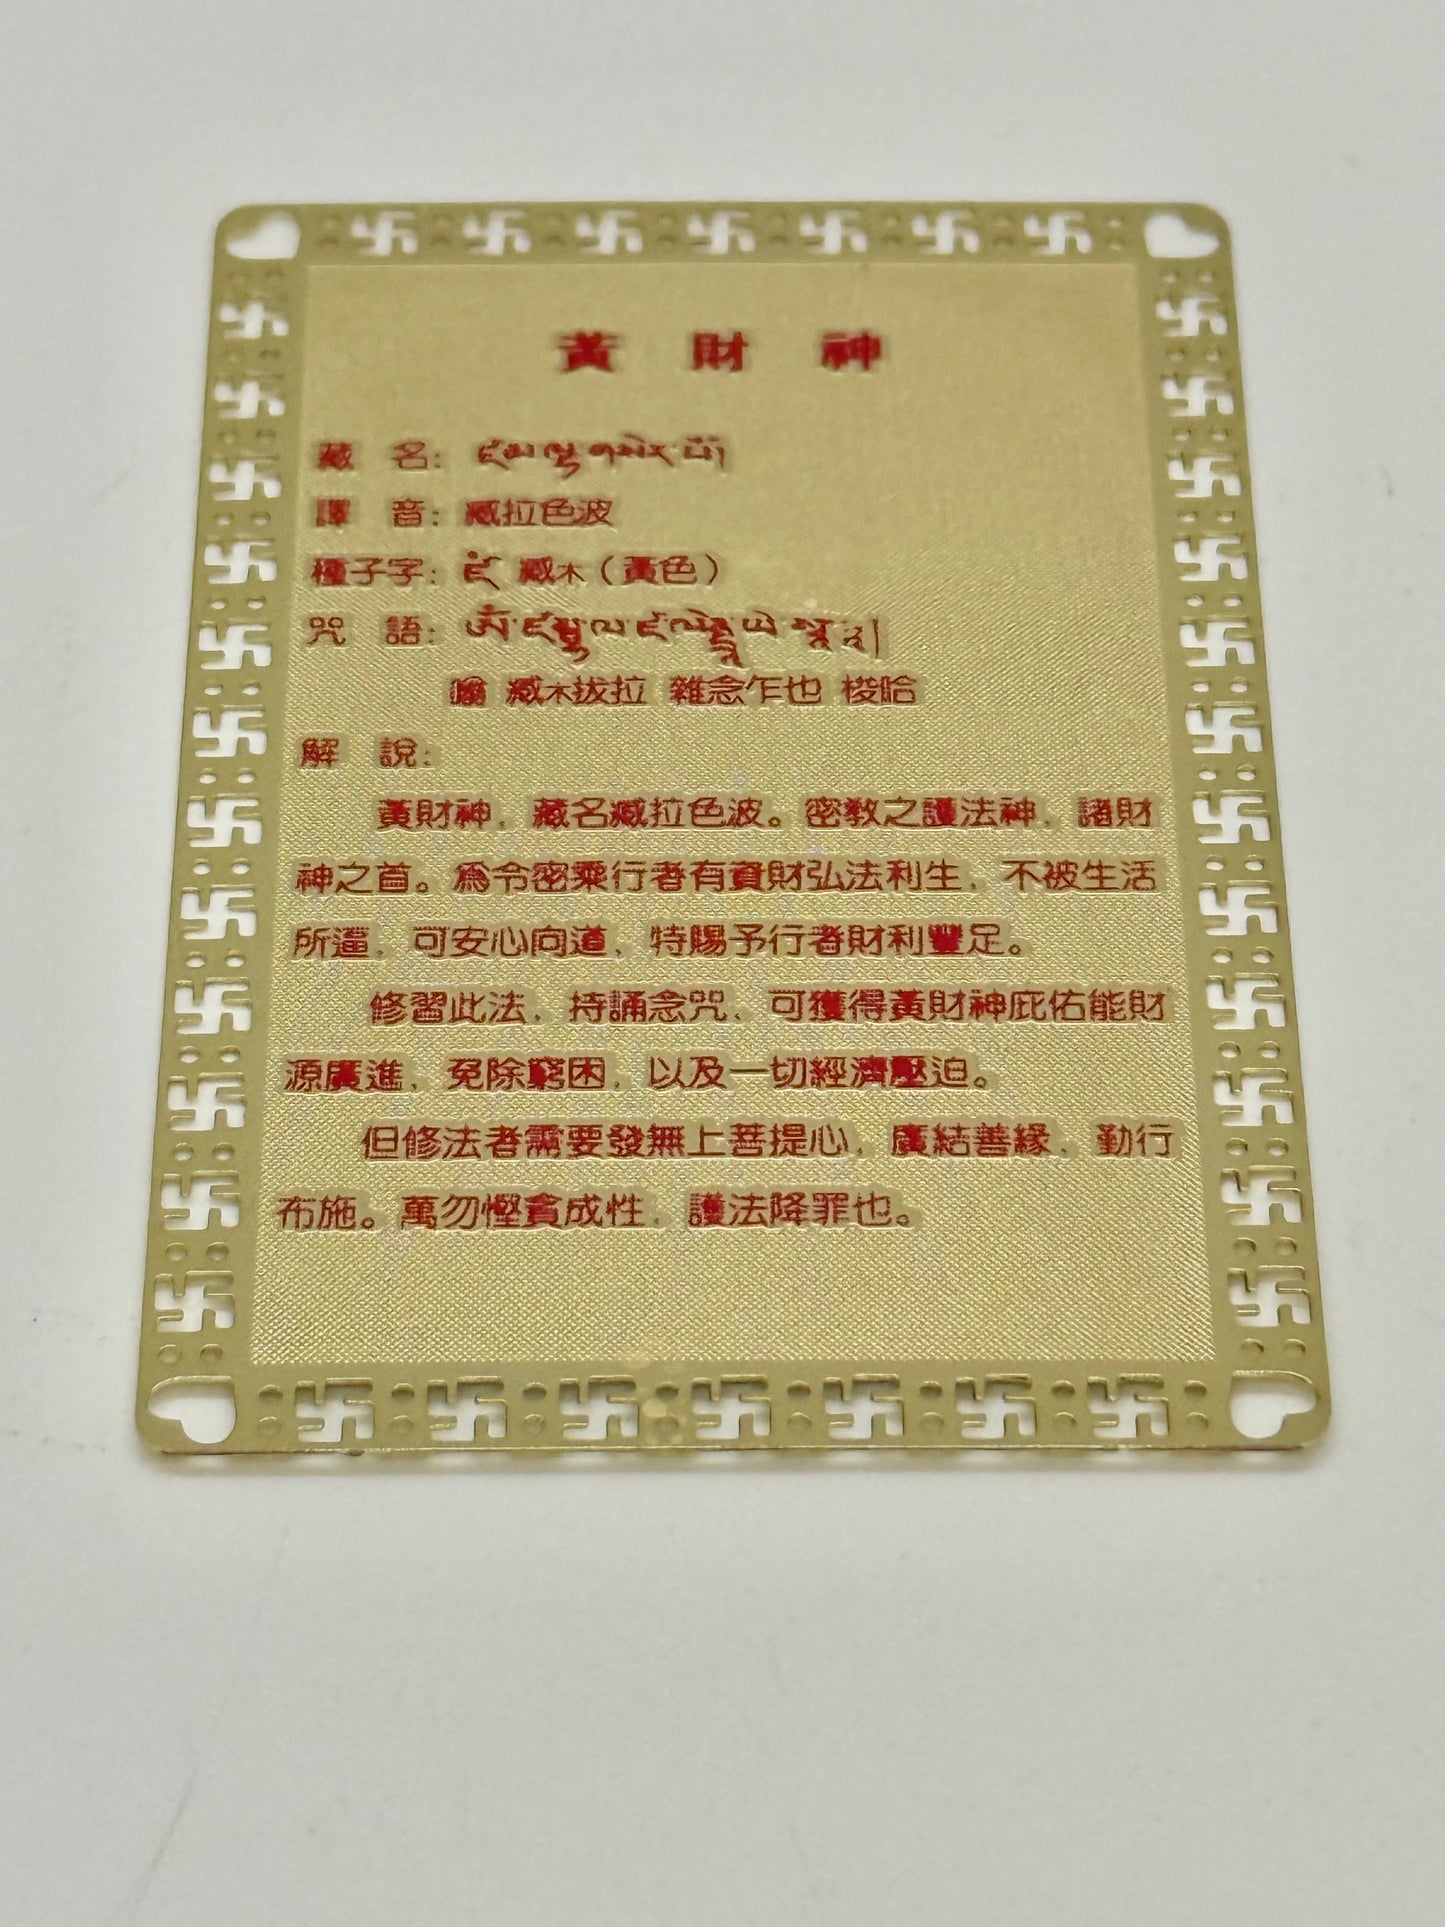 黃 財 神
藏 名：
譯 音：臧拉色波
種子字：ཛཾ 臧木（黃色）
咒 語：
嗡 臧木拔拉 雜念乍也 梭哈
解 說：
黃財神，藏名臧拉色波。密教之護法神，諸財
神之首。為令密乘行者有資財弘法利生，不被生活
所逼，可安心向道，特賜予行者財利豐足。
修習此法，持誦念咒，可獲得黃財神庇佑能財
源廣進，免除窮困，以及一切經濟壓迫。
但修法者需要發無上菩提心，廣結善緣，勤行
布施。萬勿慳貪成性，護法降罪也。